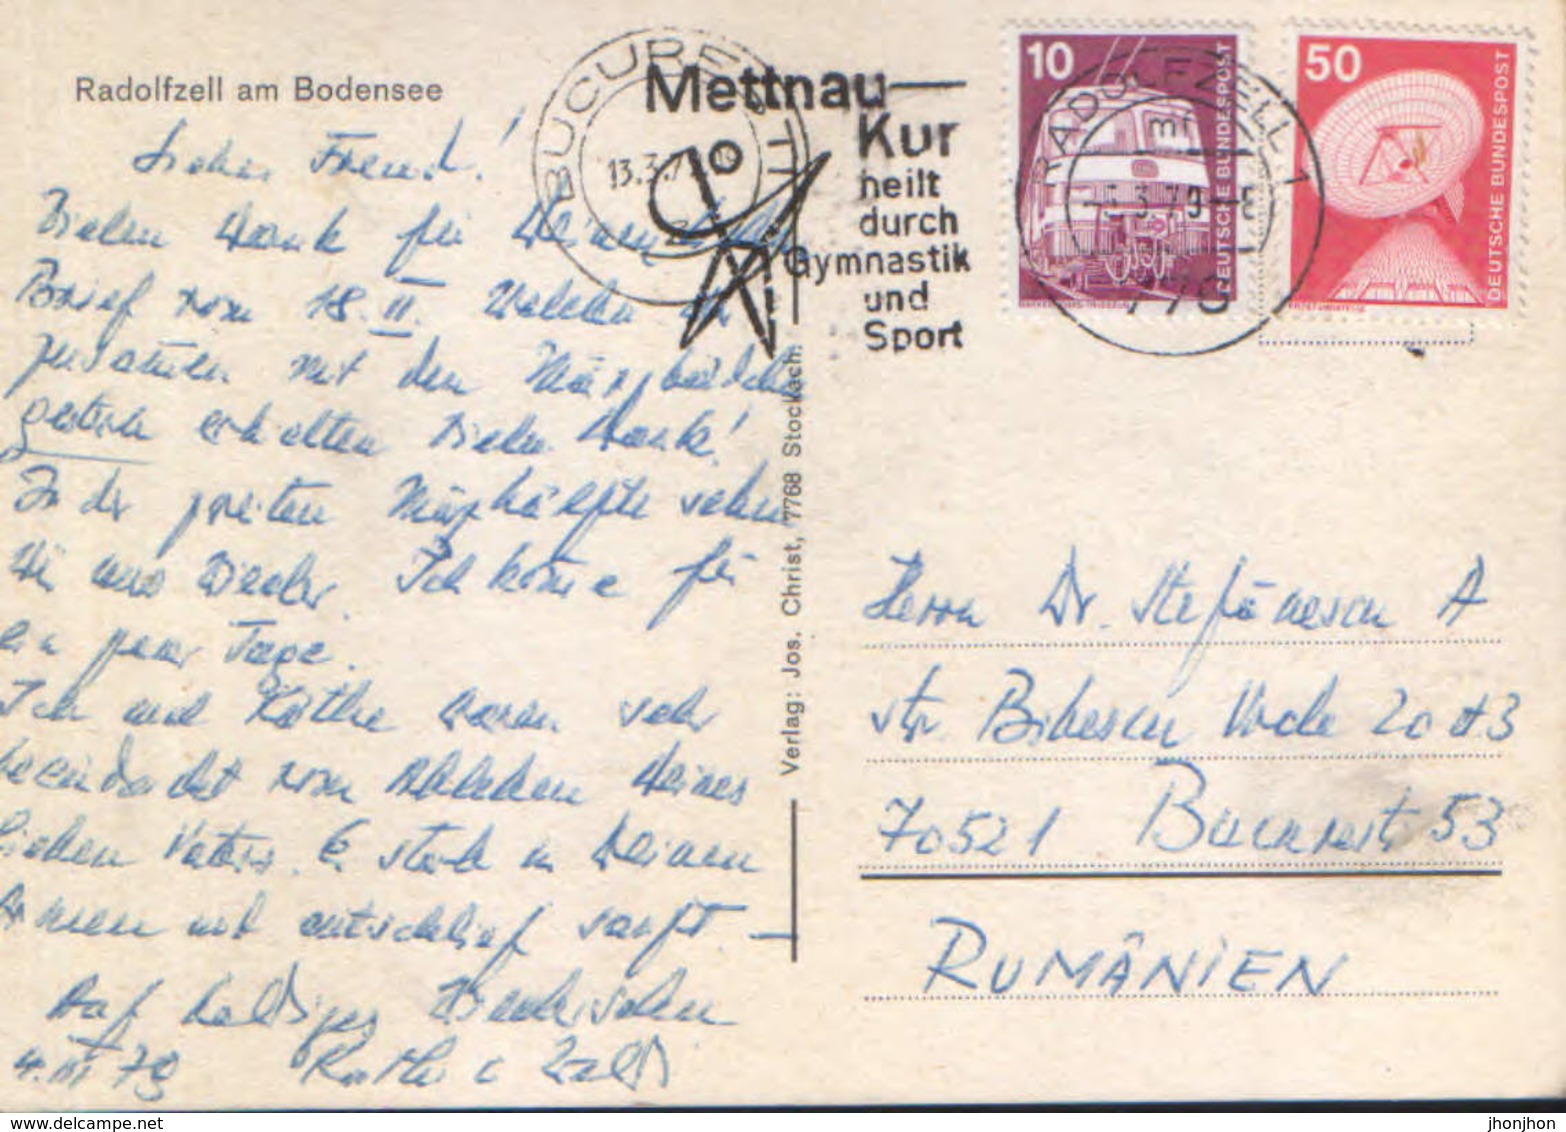 Radolfzell am Bodensee
Lieber Freund!
Vielen Dank für Deinen
Brief vom 18. II. Welchen ich
zusammen mit den
gestern erhalten Vielen Dank!
In der zweiten Märzhälfte sehen
wir uns wieder. Ich komme für
ein paar Tage.
Ich und Käthe waren sehr
vom Ableben Deines
lieben Vaters. Er starb in Deinen
Armen und entschlief sanft.
Auf baldiges Wiedersehen
4. III 79
Verlag: Jos. Christ, 7768 Stockach.
BUCUREȘTI
13.3.79
Mettnau-
Kur
heilt
durch
Gymnastik
und
Sport
RADOLFZELL 1
3.79
10
DEUTSCHE BUNDESPOST
50
DEUTSCHE BUNDESPOST
Herrn Dr. Stefănescu A
str Bibescu Vode 20
70521 Bucarest 53
RUMÂNIEN
jhonjhon